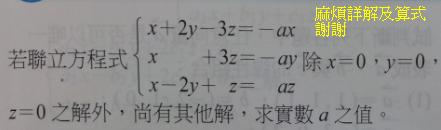 麻煩詳解及算式
謝謝
x+2y-3z=-ax
若聯立方程式 x +3z=-ay 除 x=0,y=0,
x-2y+ z= az
z=0 之解外,尚有其他解,求實數 a 之值。